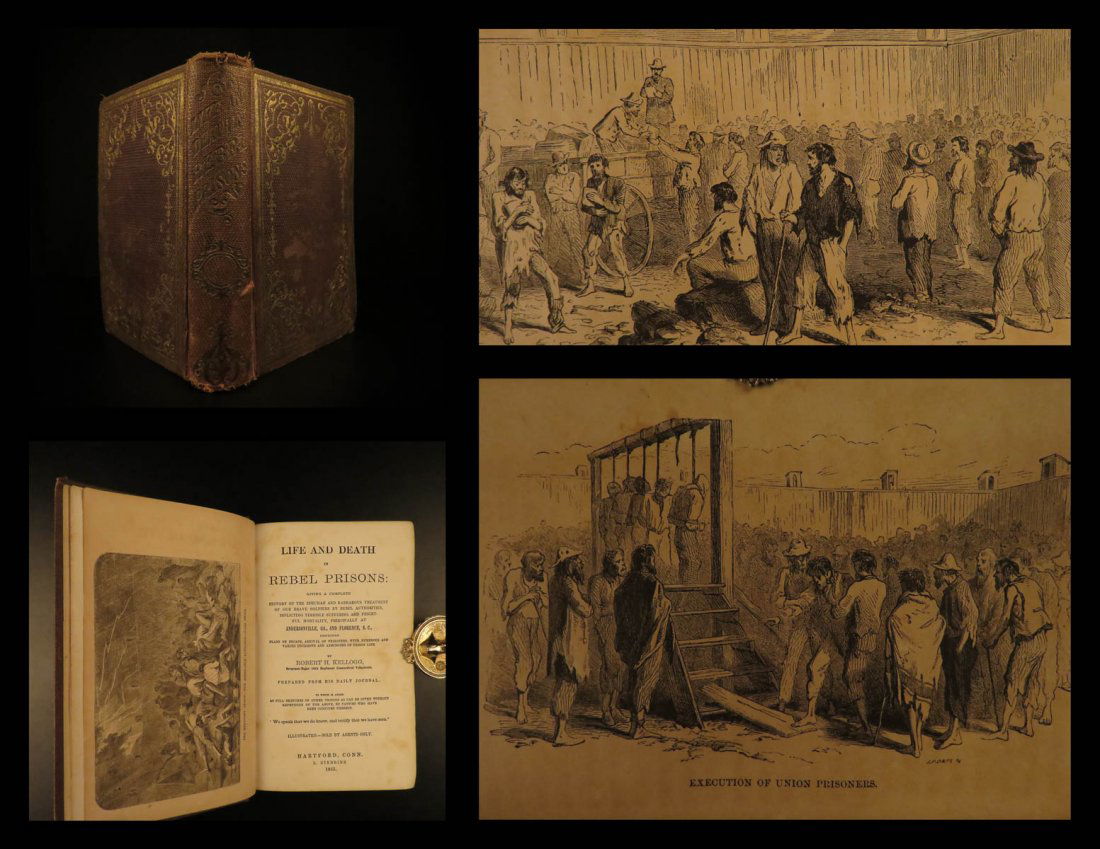 LIFE AND DEATH
IN
REBEL PRISONS:
GIVING A COMPLETE
HISTORY OF THE INHUMAN AND BARBAROUS TREATMENT
OF OUR BRAVE SOLDIERS BY REBEL AUTHORITIES,
INFLICTING TERRIBLE SUFFERING AND FRIGHT-
FUL MORTALITY, PRINCIPALLY AT
ANDERSONVILLE, GA., AND FLORENCE, S. C.,
DESCRIBING
PLANS OF ESCAPE, ARRIVAL OF PRISONERS, WITH NUMEROUS AND
VARIED INCIDENTS AND ANECDOTES OF PRISON LIFE.
BY
ROBERT H. KELLOGG,
Sergeant-Major 16th Regiment Connecticut Volunteers.
PREPARED FROM HIS DAILY JOURNAL.
TO WHICH IS ADDED
AS FULL SKETCHES OF OTHER PRISONS AS CAN BE GIVEN WITHOUT
REPETITION OF THE ABOVE, BY PARTIES WHO HAVE
BEEN CONFINED THEREIN.
"We speak that we do know, and testify that we have seen."
ILLUSTRATED.—SOLD BY AGENTS ONLY.
HARTFORD, CONN.
L. STEBBINS
1865.
EXECUTION OF UNION PRISONERS.